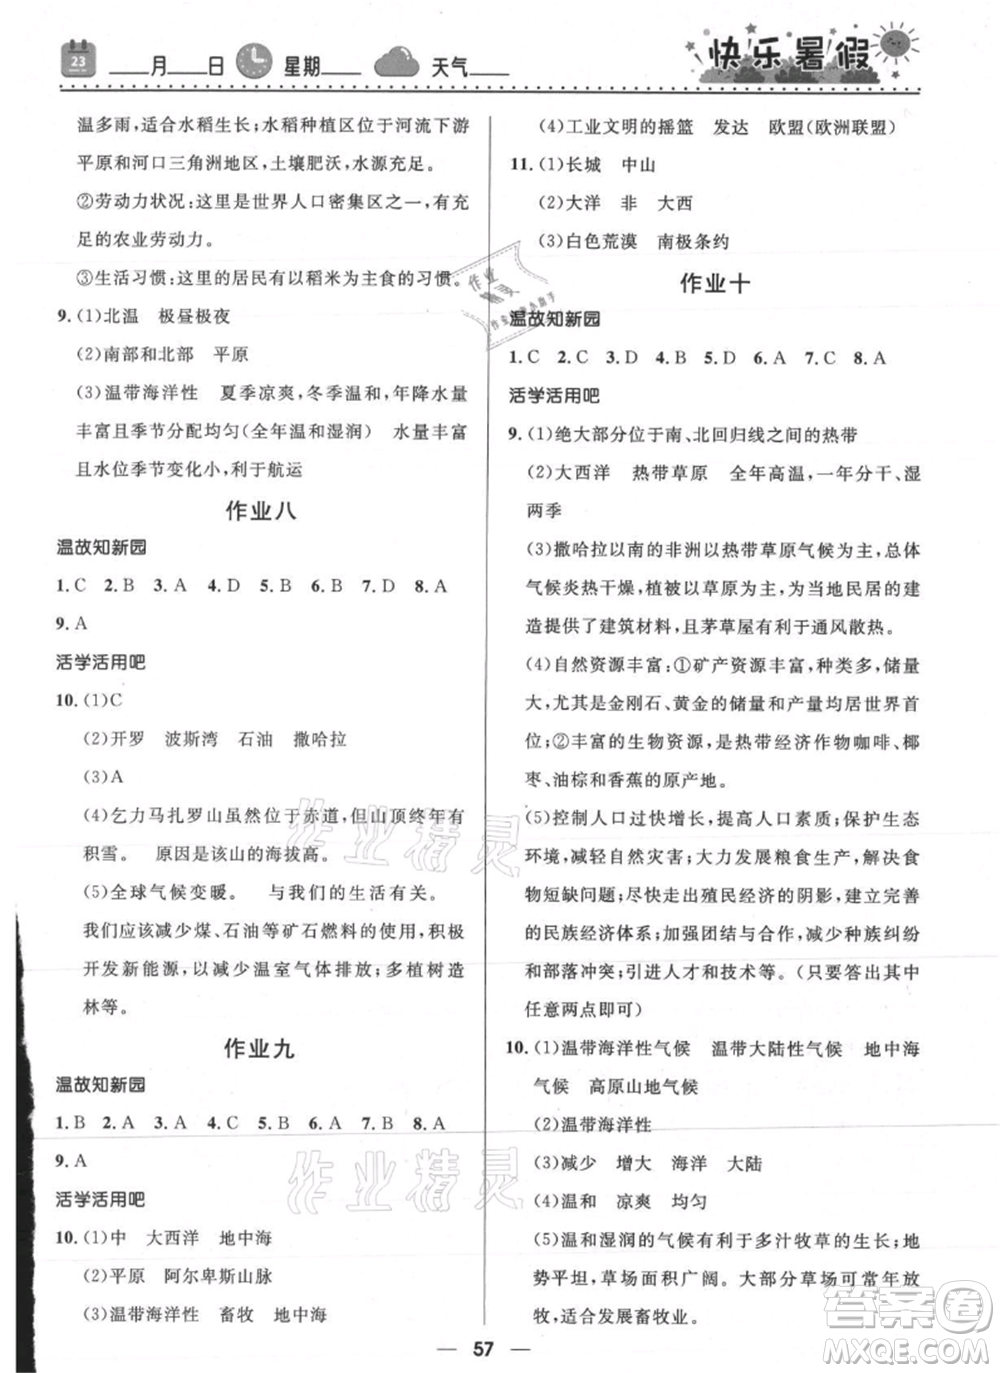 23
____月____日 星期____ 天气____
快乐暑假
温多雨,适合水稻生长;水稻种植区位于河流下游
平原和河口三角洲地区,土壤肥沃,水源充足。
②劳动力状况:这里是世界人口密集区之一,有充
足的农业劳动力。
③生活习惯:这里的居民有以稻米为主食的习惯。
9. (1)北温 极昼极夜
(2)南部和北部 平原
(3)温带海洋性 夏季凉爽,冬季温和,年降水量
丰富且季节分配均匀(全年温和湿润) 水量丰富
且水位季节变化小,利于航运
作业八
温故知新园
1. C 2. B 3. A 4. D 5. B 6. B 7. D 8. A
9. A
活学活用吧
10. (1)C
(2)开罗 波斯湾 石油 撒哈拉
(3)A
(4)乞力马扎罗山虽然位于赤道,但山顶终年有
积雪。 原因是该山的海拔高。
(5)全球气候变暖。 与我们的生活有关。
我们应该减少煤、石油等矿石燃料的使用,积极
开发新能源,以减少温室气体排放;多植树造
林等。
作业九
温故知新园
1. B 2. A 3. A 4. C 5. B 6. B 7. B 8. A
9. A
活学活用吧
10. (1)中 大西洋 地中海
(2)平原 阿尔卑斯山脉
(3)温带海洋性 畜牧 地中海
(4)工业文明的摇篮 发达 欧盟(欧洲联盟)
11. (1)长城 中山
(2)大洋 非 大西
(3)白色荒漠 南极条约
作业十
温故知新园
1. C 2. C 3. D 4. B 5. D 6. A 7. C 8. A
活学活用吧
9. (1)绝大部分位于南、北回归线之间的热带
(2)大西洋 热带草原 全年高温,一年分干、湿
两季
(3)撒哈拉以南的非洲以热带草原气候为主,总体
气候炎热干燥,植被以草原为主,为当地民居的建
造提供了建筑材料,且茅草屋有利于通风散热。
(4)自然资源丰富:①矿产资源丰富,种类多,储量
大,尤其是金刚石、黄金的储量和产量均居世界首
位;②丰富的生物资源,是热带经济作物咖啡、椰
枣、油棕和香蕉的原产地。
(5)控制人口过快增长,提高人口素质;保护生态
环境,减轻自然灾害;大力发展粮食生产,解决食
物短缺问题;尽快走出殖民经济的阴影,建立完善
的民族经济体系;加强团结与合作,减少种族纠纷
和部落冲突;引进人才和技术等。(只要答出其中
任意两点即可)
10. (1)温带海洋性气候 温带大陆性气候 地中海
气候 高原山地气候
(2)温带海洋性
(3)减少 增大 海洋 大陆
(4)温和 凉爽 均匀
(5)温和湿润的气候有利于多汁牧草的生长;地
势平坦,草场面积广阔。大部分草场可常年放
牧,适合发展畜牧业。
57
作业精灵
作业精灵
答案卷
MXQE.COM